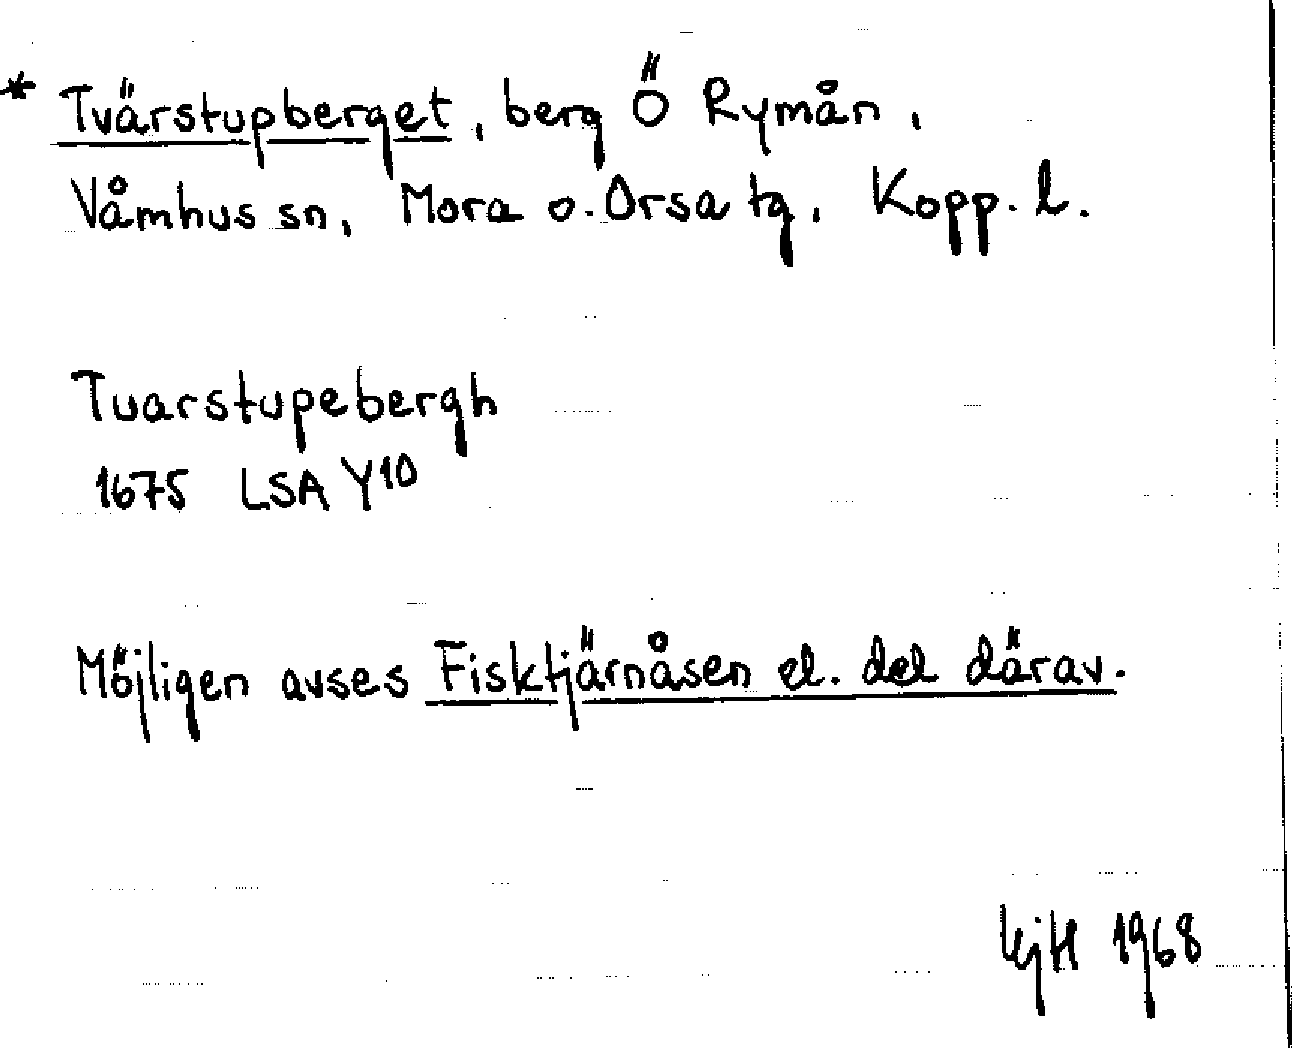 * Tvärstupberget, berg Ö Rymån,
Våmhus sn, Mora o. Orsa tg, Kopp. l.
Tuarstupebergh
1675 LSA Y10
Möjligen avses Fisktjärnåsen el. del därav.
KjH 1968